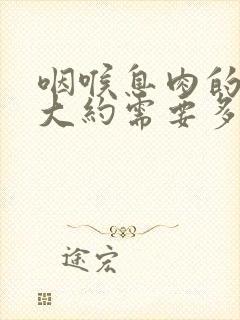 咽喉息肉的
大约需要多
途宏